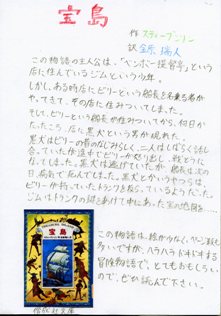 宝島
作 スティーブンソン
訳 金原 瑞人
この物語の主人公は、「ベンボー提督亭」という
店に住んでいるジムという少年。
しかし、ある時店にビリーという船長を名乗る者が
やってきて、その店に住みついてしまう。
そして、ビリーという船長が住みついてから、何日か
たったころ、店に黒犬という男が現れた。
黒犬はビリーの昔のなじみらしく、二人はしばらく話し
合っていたが途中でビリーが怒り出し、戦どうに
なってしまう。黒犬は逃げていったが、船長は次の
日、病気で死んでしまう。黒犬とかいうやつらは、
ビリーが持っていたトランクをねらっているようだった。
ジムはトランクの鍵をあけて中にあった宝の地図を……。
この物語は、絵が少なく、ページ数も
多いですが、ハラハラドキドキする
冒険物語で、とてもおもしろい
ので、ぜひ読んで下さい。
宝島
偕成社文庫